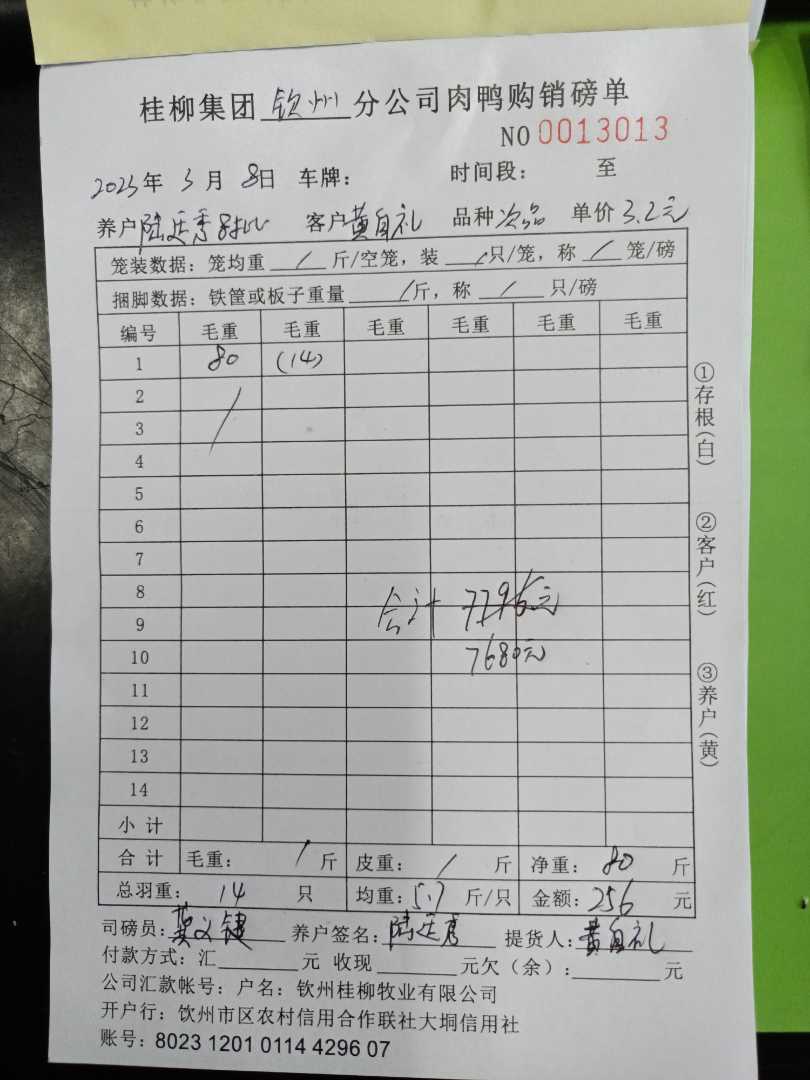 桂柳集团 钦州 分公司肉鸭购销磅单
NO 0013013
2025年 5月 8日 车牌: 时间段: 至
养户 陆廷秀 客户 黄自礼 品种 次品 单价 3.2元
笼装数据:笼均重 / 斤/空笼,装 / 只/笼,称 / 笼/磅
捆脚数据:铁筐或板子重量 / 斤,称 / 只/磅
编号 毛重 毛重 毛重 毛重 毛重 毛重
1 80 (14)
2
3
4
5
6
7
8
合计
9
10 7680元
11
12
13
14
小计
合计 毛重: / 斤 皮重: / 斤 净重: 80 斤
总羽重: 14 只 均重: 5.7 斤/只 金额: 256 元
司磅员: 莫义键 养户签名: 陆廷秀 提货人: 黄自礼
付款方式:汇 元 收现 元欠(余): 元
公司汇款帐号:户名:钦州桂柳牧业有限公司
开户行:钦州市区农村信用合作联社大垌信用社
账号:8023 1201 0114 4296 07
①存根(白)
②客户(红)
③养户(黄)